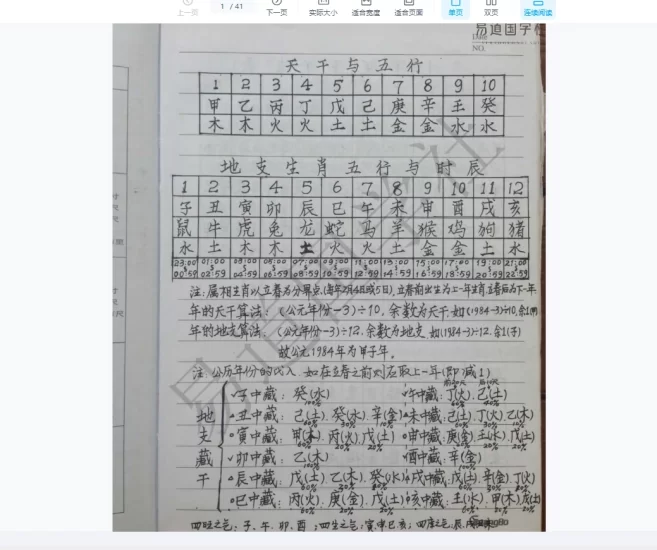 上一页 1 / 41 下一页 实际大小 适合宽度 适合页面 单页 双页 连续阅读
易道国学社
Date
NO.
天干与五行
1 2 3 4 5 6 7 8 9 10
甲 乙 丙 丁 戊 己 庚 辛 壬 癸
木 木 火 火 土 土 金 金 水 水
地支生肖五行与时辰
1 2 3 4 5 6 7 8 9 10 11 12
子 丑 寅 卯 辰 巳 午 未 申 酉 戌 亥
鼠 牛 虎 兔 龙 蛇 马 羊 猴 鸡 狗 猪
水 土 木 木 土 火 火 土 金 金 土 水
23:00 01:00 03:00 05:00 07:00 09:00 11:00 13:00 15:00 17:00 19:00 21:00
00:59 02:59 04:59 06:59 08:59 10:59 12:59 14:59 16:59 18:59 20:59 22:59
注:属相生肖以立春为分界点,(每年2月4日或5日),立春前出生为上一年生肖,立春后为下一年
年的天干算法:(公元年份-3)÷10,余数为天干,如(1984-3)÷10,余1(甲)
年的地支算法:(公元年份-3)÷12,余数为地支,如(1984-3)÷12,余1(子)
故公元1984年为甲子年。
注:公历年份的代入,如在立春之前则应取上一年(即减1)
地支藏干
子中藏:癸(水) 午中藏:丁(火)、己(土)
丑中藏:己(土)、癸(水)、辛(金) 未中藏:己(土)、丁(火)、乙(木)
寅中藏:甲(木)、丙(火)、戊(土) 申中藏:庚(金)、壬(水)、戊(土)
卯中藏:乙(木) 酉中藏:辛(金)
辰中藏:戊(土)、乙(木)、癸(水) 戌中藏:戊(土)、辛(金)、丁(火)
巳中藏:丙(火)、庚(金)、戊(土) 亥中藏:壬(水)、甲(木)、戊(土)
四旺之气:子、午、卯、酉;四生之气:寅申巳亥;四库之气:辰
易道国学社